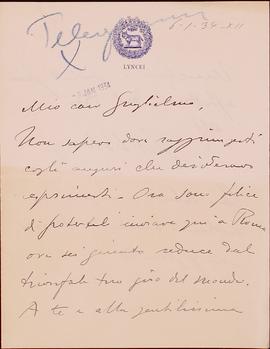 Telegramma
5-1-34-XII
X
LYNCEI
JAN 1934
Mio caro Guglielmo,
Non sapevo dove raggiungerti
cogli auguri che desideravo
esprimerti. Ora sono felice
di poterteli inviare qui a Roma
ora sei giunto reduce dal
trionfale tuo giro del mondo.
A te e alla gentilissima